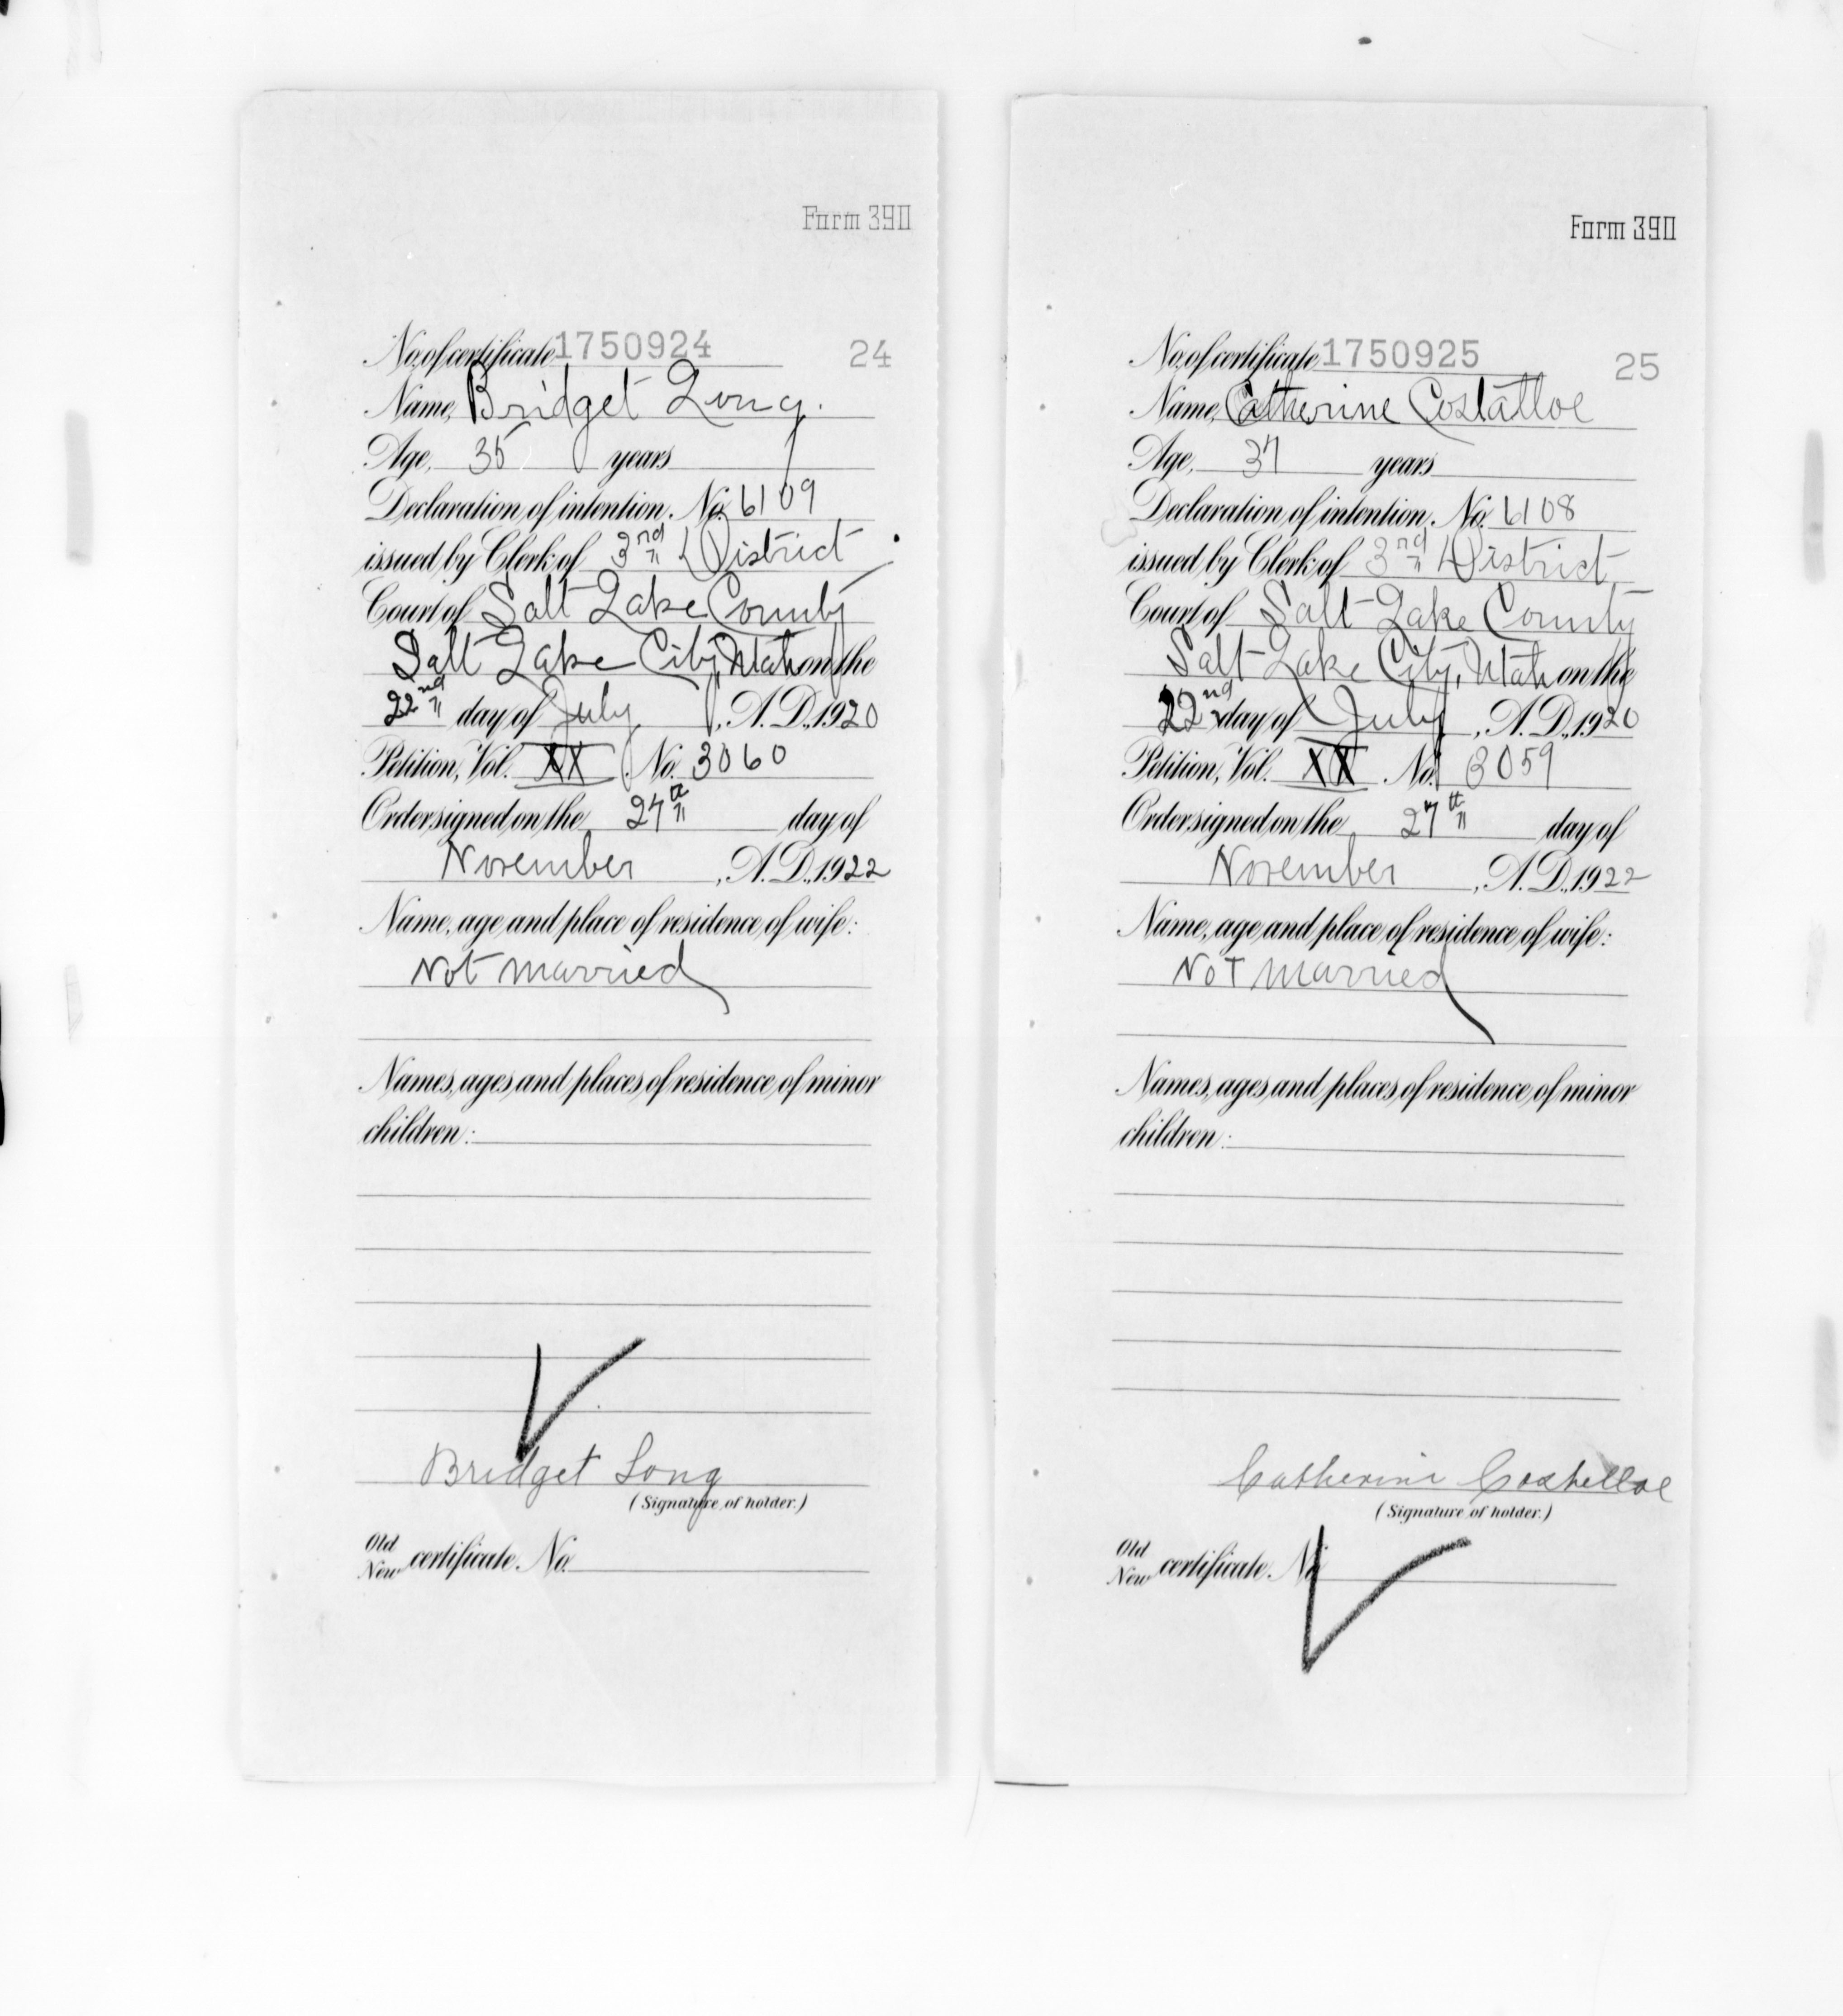 Form 390
No. of certificate 1750924 24
Name, Bridget Long.
Age, 35 years
Declaration of intention, No. 6109
issued by Clerk of 3rd District
Court of Salt Lake County
Salt Lake City, Utah on the
22nd day of July, A. D., 1920
Petition, Vol. XX No. 3060
Order signed on the 27th day of
November, A. D., 1922
Name, age and place of residence of wife:
Not married
Names, ages and places of residence of minor
children:
Bridget Long
(Signature of holder.)
Old
New certificate No.
Form 390
No. of certificate 1750925 25
Name, Catherine Costalloe
Age, 37 years
Declaration of intention, No. 6108
issued by Clerk of 3rd District
Court of Salt Lake County
Salt Lake City, Utah on the
22nd day of July, A. D., 1920
Petition, Vol. XX No. 3059
Order signed on the 27th day of
November, A. D., 1922
Name, age and place of residence of wife:
Not married
Names, ages and places of residence of minor
children:
Catherine Costelloe
(Signature of holder.)
Old
New certificate No.